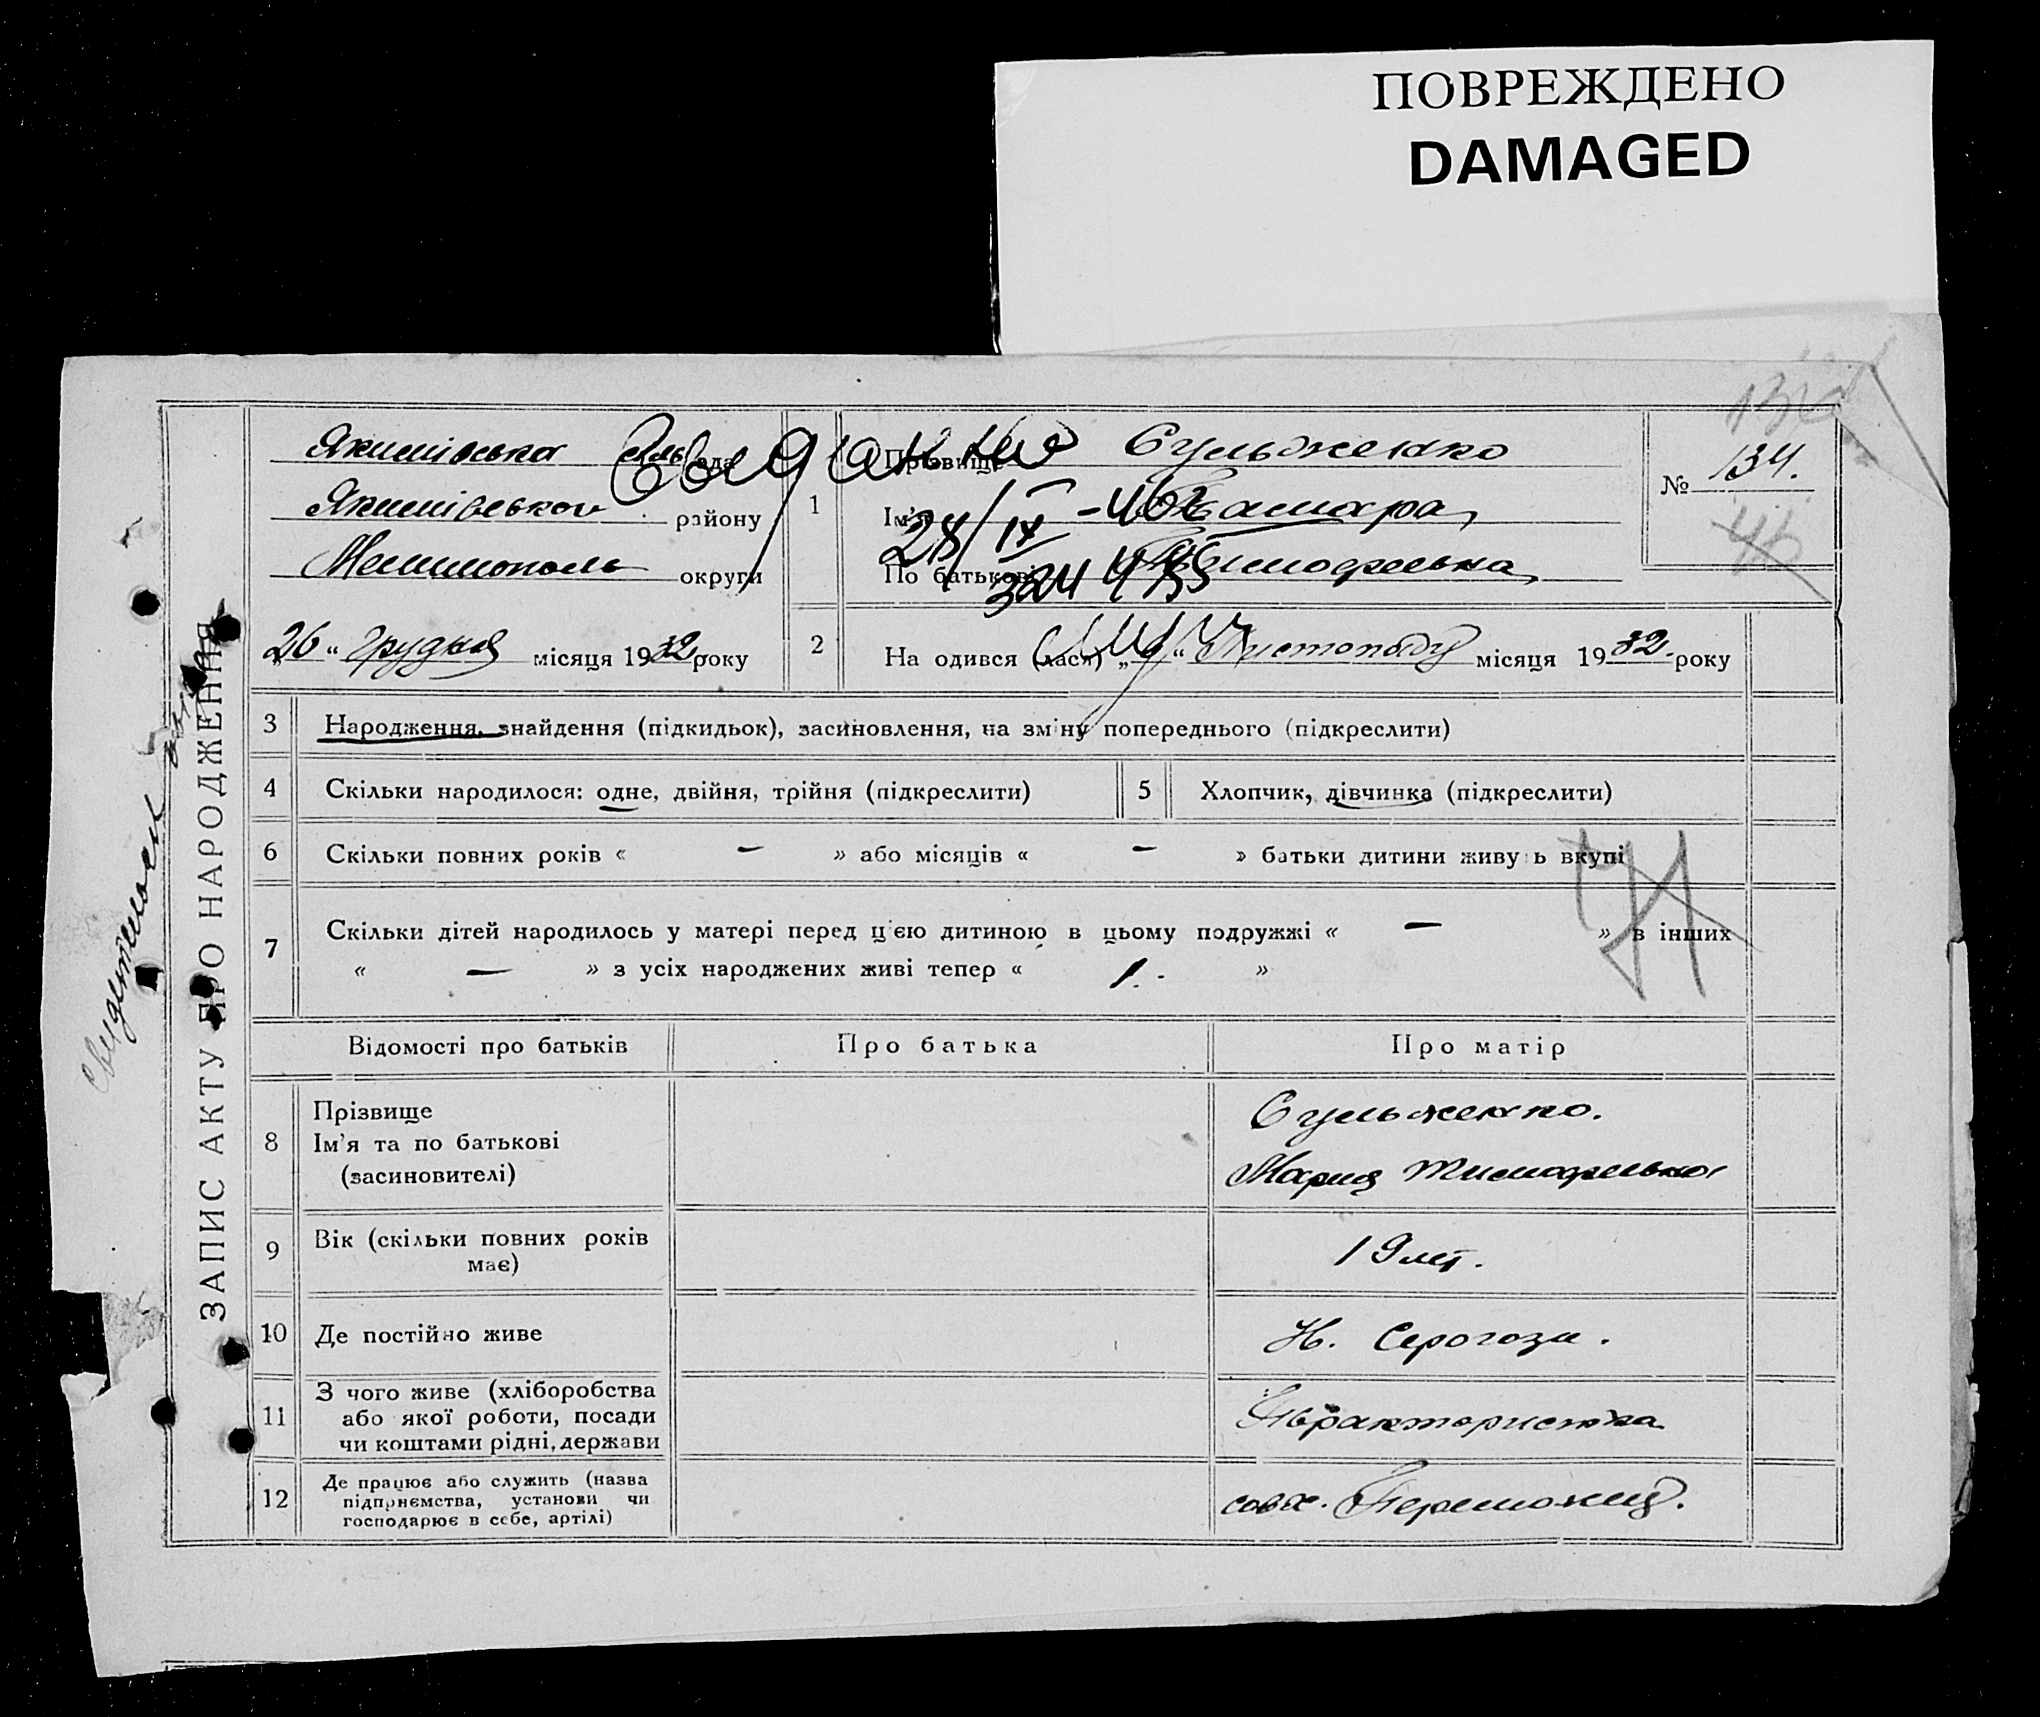 ПОВРЕЖДЕНО
DAMAGED
ЗАПИС АКТУ ПРО НАРОДЖЕННЯ
Якимівська сільрада
Якимівського району
Мелитополь округи
"26" грудня місяця 1932 року
1
Прізвище Сульженко
Ім'я Тамара
По батькові Тимофеевна
№ 134.
28/IX-46
2
На одився (лася) „9" Листопаду місяця 1932 року
3
Народження, знайдення (підкидьок), засиновлення, на зміну попереднього (підкреслити)
4
Скільки народилося: одне, двійня, трійня (підкреслити)
5
Хлопчик, дівчинка (підкреслити)
6
Скільки повних років « — » або місяців « — » батьки дитини живуть вкупі
7
Скільки дітей народилось у матері перед цією дитиною в цьому подружжі « — » в інших
« — » з усіх народжених живі тепер « 1. »
Відомості про батьків
Про батька
Про матір
8
Прізвище
Ім'я та по батькові
(засиновителі)
Сульженко.
Мария Тимофеевна
9
Вік (скільки повних років
має)
19 лет.
10
Де постійно живе
Н. Серогози.
11
З чого живе (хліборобства
або якої роботи, посади
чи коштами рідні, держави
Трактористка
12
Де працює або служить (назва
підприємства, установи чи
господарює в себе, артілі)
совх. Переможец.